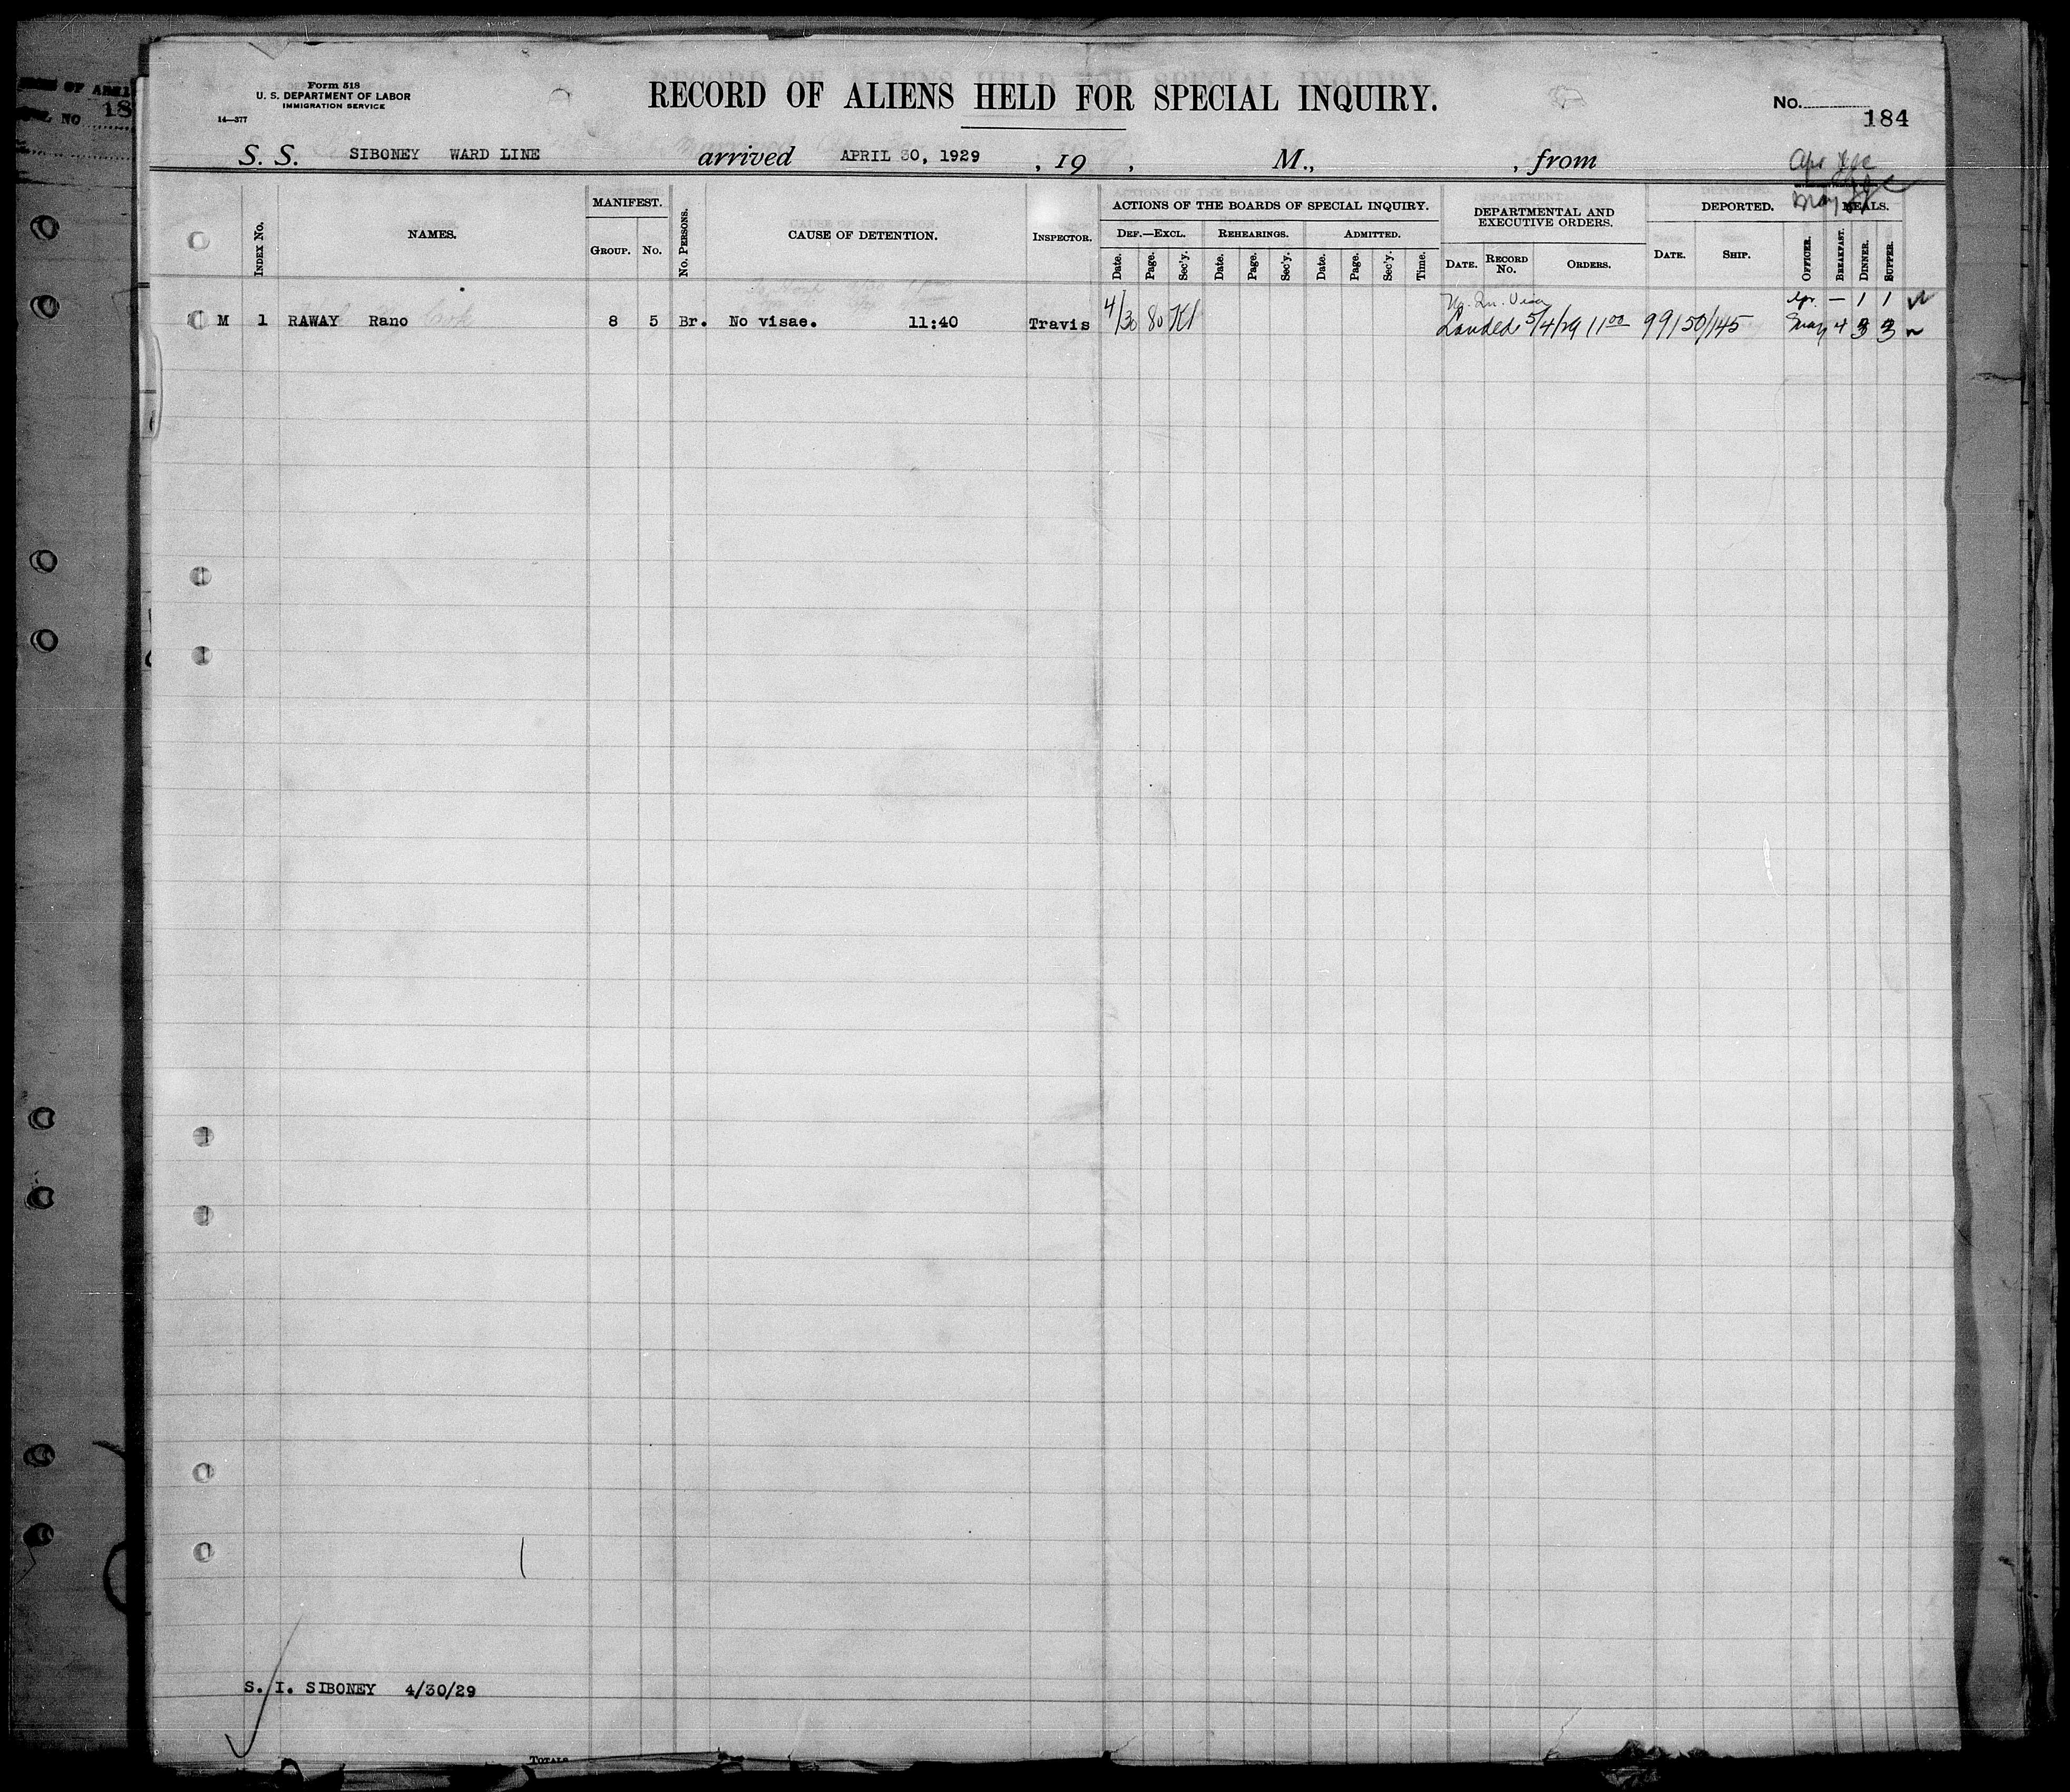 OF ALI
18
NO
Form 518
U. S. DEPARTMENT OF LABOR
IMMIGRATION SERVICE
14—377
RECORD OF ALIENS HELD FOR SPECIAL INQUIRY.
No.
184
S. S. SIBONEY WARD LINE arrived APRIL 30, 1929 , 19 , M., , from
Apr
May
INDEX NO.
NAMES.
MANIFEST.
GROUP. NO.
NO. PERSONS.
CAUSE OF DETENTION.
INSPECTOR.
ACTIONS OF THE BOARDS OF SPECIAL INQUIRY.
DEF.—EXCL. REHEARINGS. ADMITTED.
Date. Page. Sec'y. Date. Page. Sec'y. Date. Page. Sec'y. Time.
DEPARTMENTAL AND
EXECUTIVE ORDERS.
DATE. RECORD NO. ORDERS.
DEPORTED.
DATE. SHIP.
MEALS.
OFFICER. BREAKFAST. DINNER. SUPPER.
Apr. — 1 1
M 1 RAWAY Rano 8 5 Br. No visae. 11:40 Travis 4/30 80 Landed 5/4/29 11 00 99150/145 May 4 3 3
S. I. SIBONEY 4/30/29
TOTALS